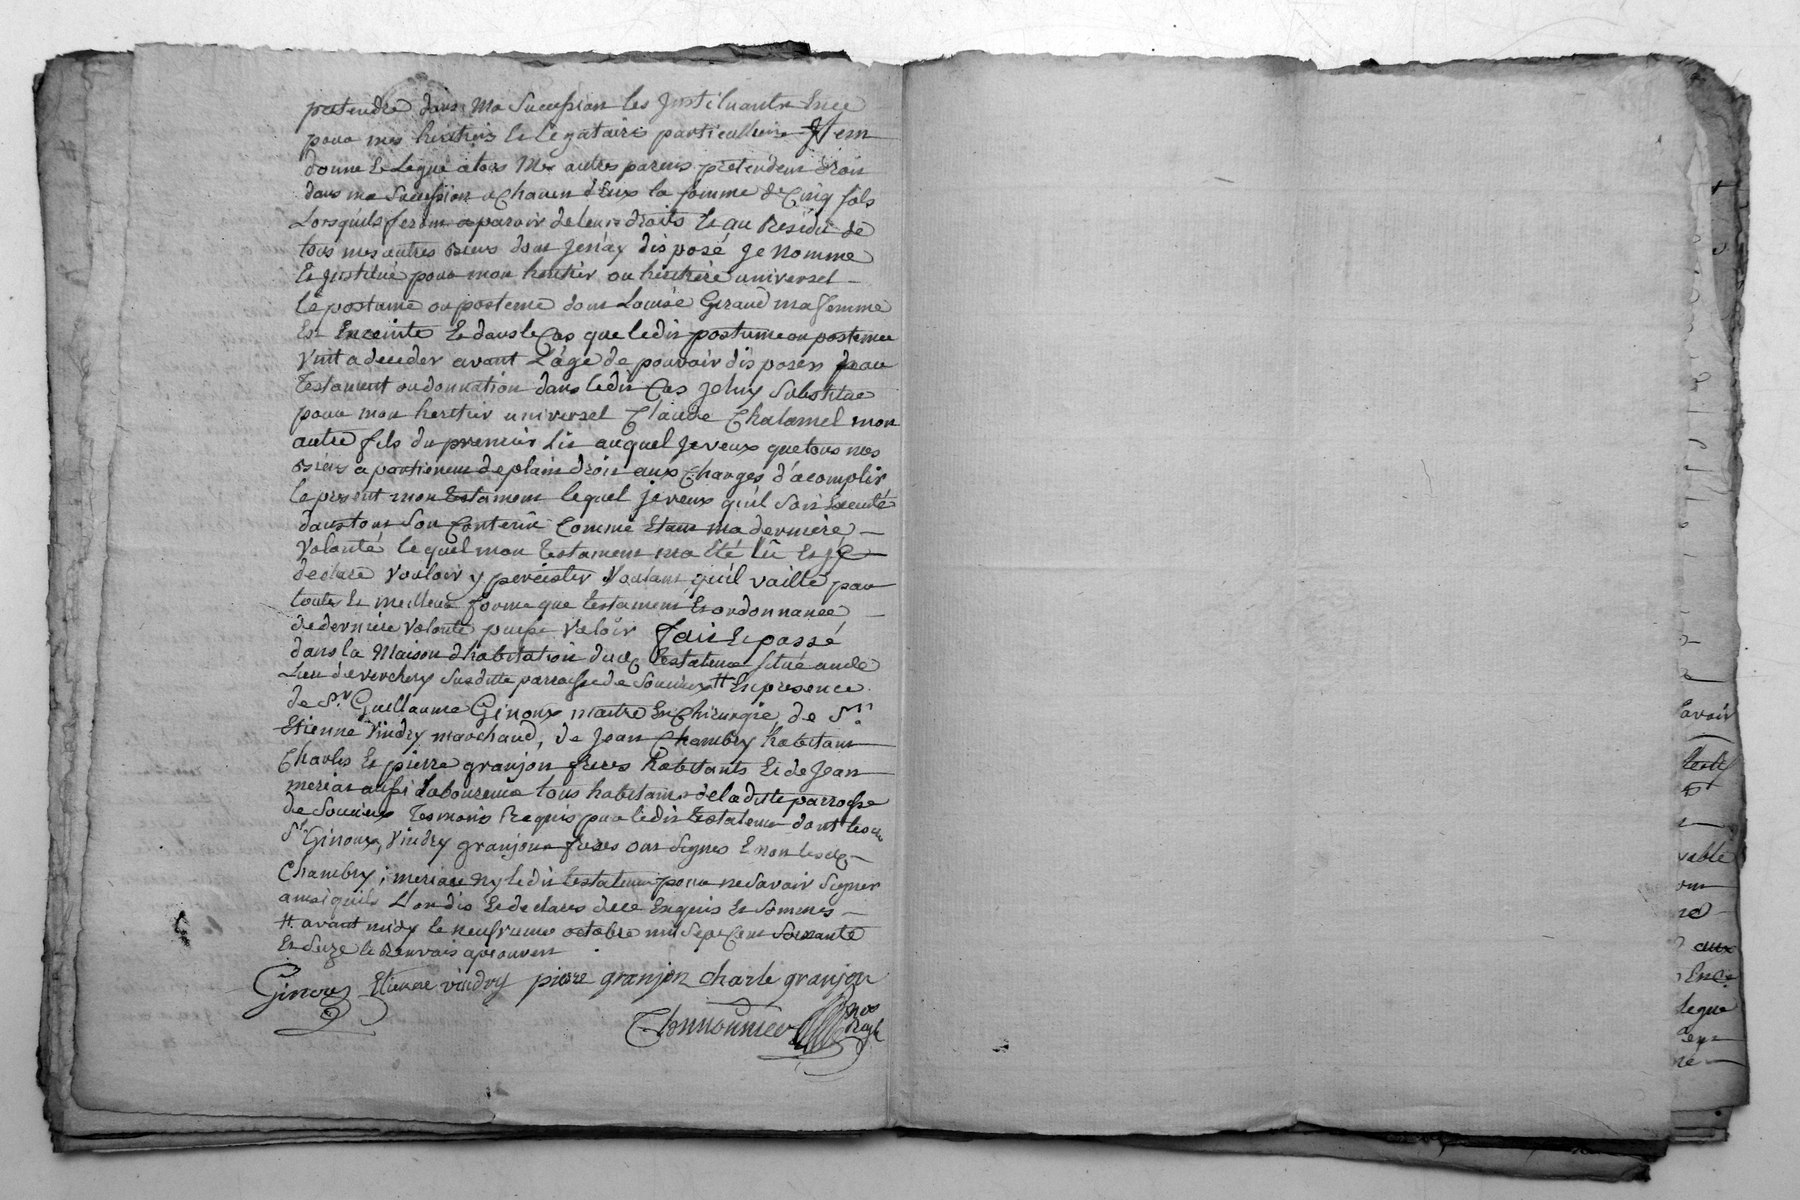 pretendre dans ma succession les Justituants En ce
pour mes heritiers Et Legataires particulliers Item
donne Et Legue a tous Mes autres parens pretendens droit
dans ma succession a Chacun d'Eux la somme de Cinq sols
Lorsquils feront aparoir de leurs droits Et au Residu de
tous mes autres Biens dont Je n'ay disposé Je Nomme
Et Justitué pour mon heritier ou heritiere universel
le postume ou posteme dont Louise Giraud ma femme
Est Enceinte Et dans le Cas que ledit postume ou posteme
Vint a deceder avant L'age de pouvoir disposer par
Testament ou donnation dans ledit Cas Je luy Substitue
pour mon heritier universel Claude Chalamel mon
autre fils du premier Lit auquel Je veux que tous mes
Biens apartienent de plain droit aux Charges d'acomplir
le present mon testament lequel Je veux qu'il soit Executé
dans tout son Contenû Comme Etant ma derniere
Volonté lequel mon testament ma Eté lû Et Je
declare Vouloir y percister Voulant qu'il vaille par
toute Et meilleur forme que testament Et ordonnance
de derniere Volonté puisse Valoir fait Et passé
dans la Maison d'habitation dudt testateur situé au dt
Lieu de verchery Susditte parroisse de Soucieux # En presence
de Sr. Guillaume Ginoux maitre En Chirurgie, de Sr.
Etienne Vindry marchand, de Jean Chambry habitant
Charles Et pierre granjon freres habitants Et de Jean
meriar aussi Laboureur tous habitants de laditte parroisse
de Soucieux Temoins Requis par ledit testateur dont lesdt
Sr Ginoux, Vindry granjon freres ont signes Et non lesdt
Chambry, meriar Ny ledit testateur pour ne savoir signer
ainsi quils L'on dit Et declares de ce Enquis Et sommes
# avant midy le neufvieme octobre mil sept Cent soixante
Et seize le Renvois aprouvent
Ginoux Etienne vindry pierre granjon charle granjon
Thonnonnier nore Royl